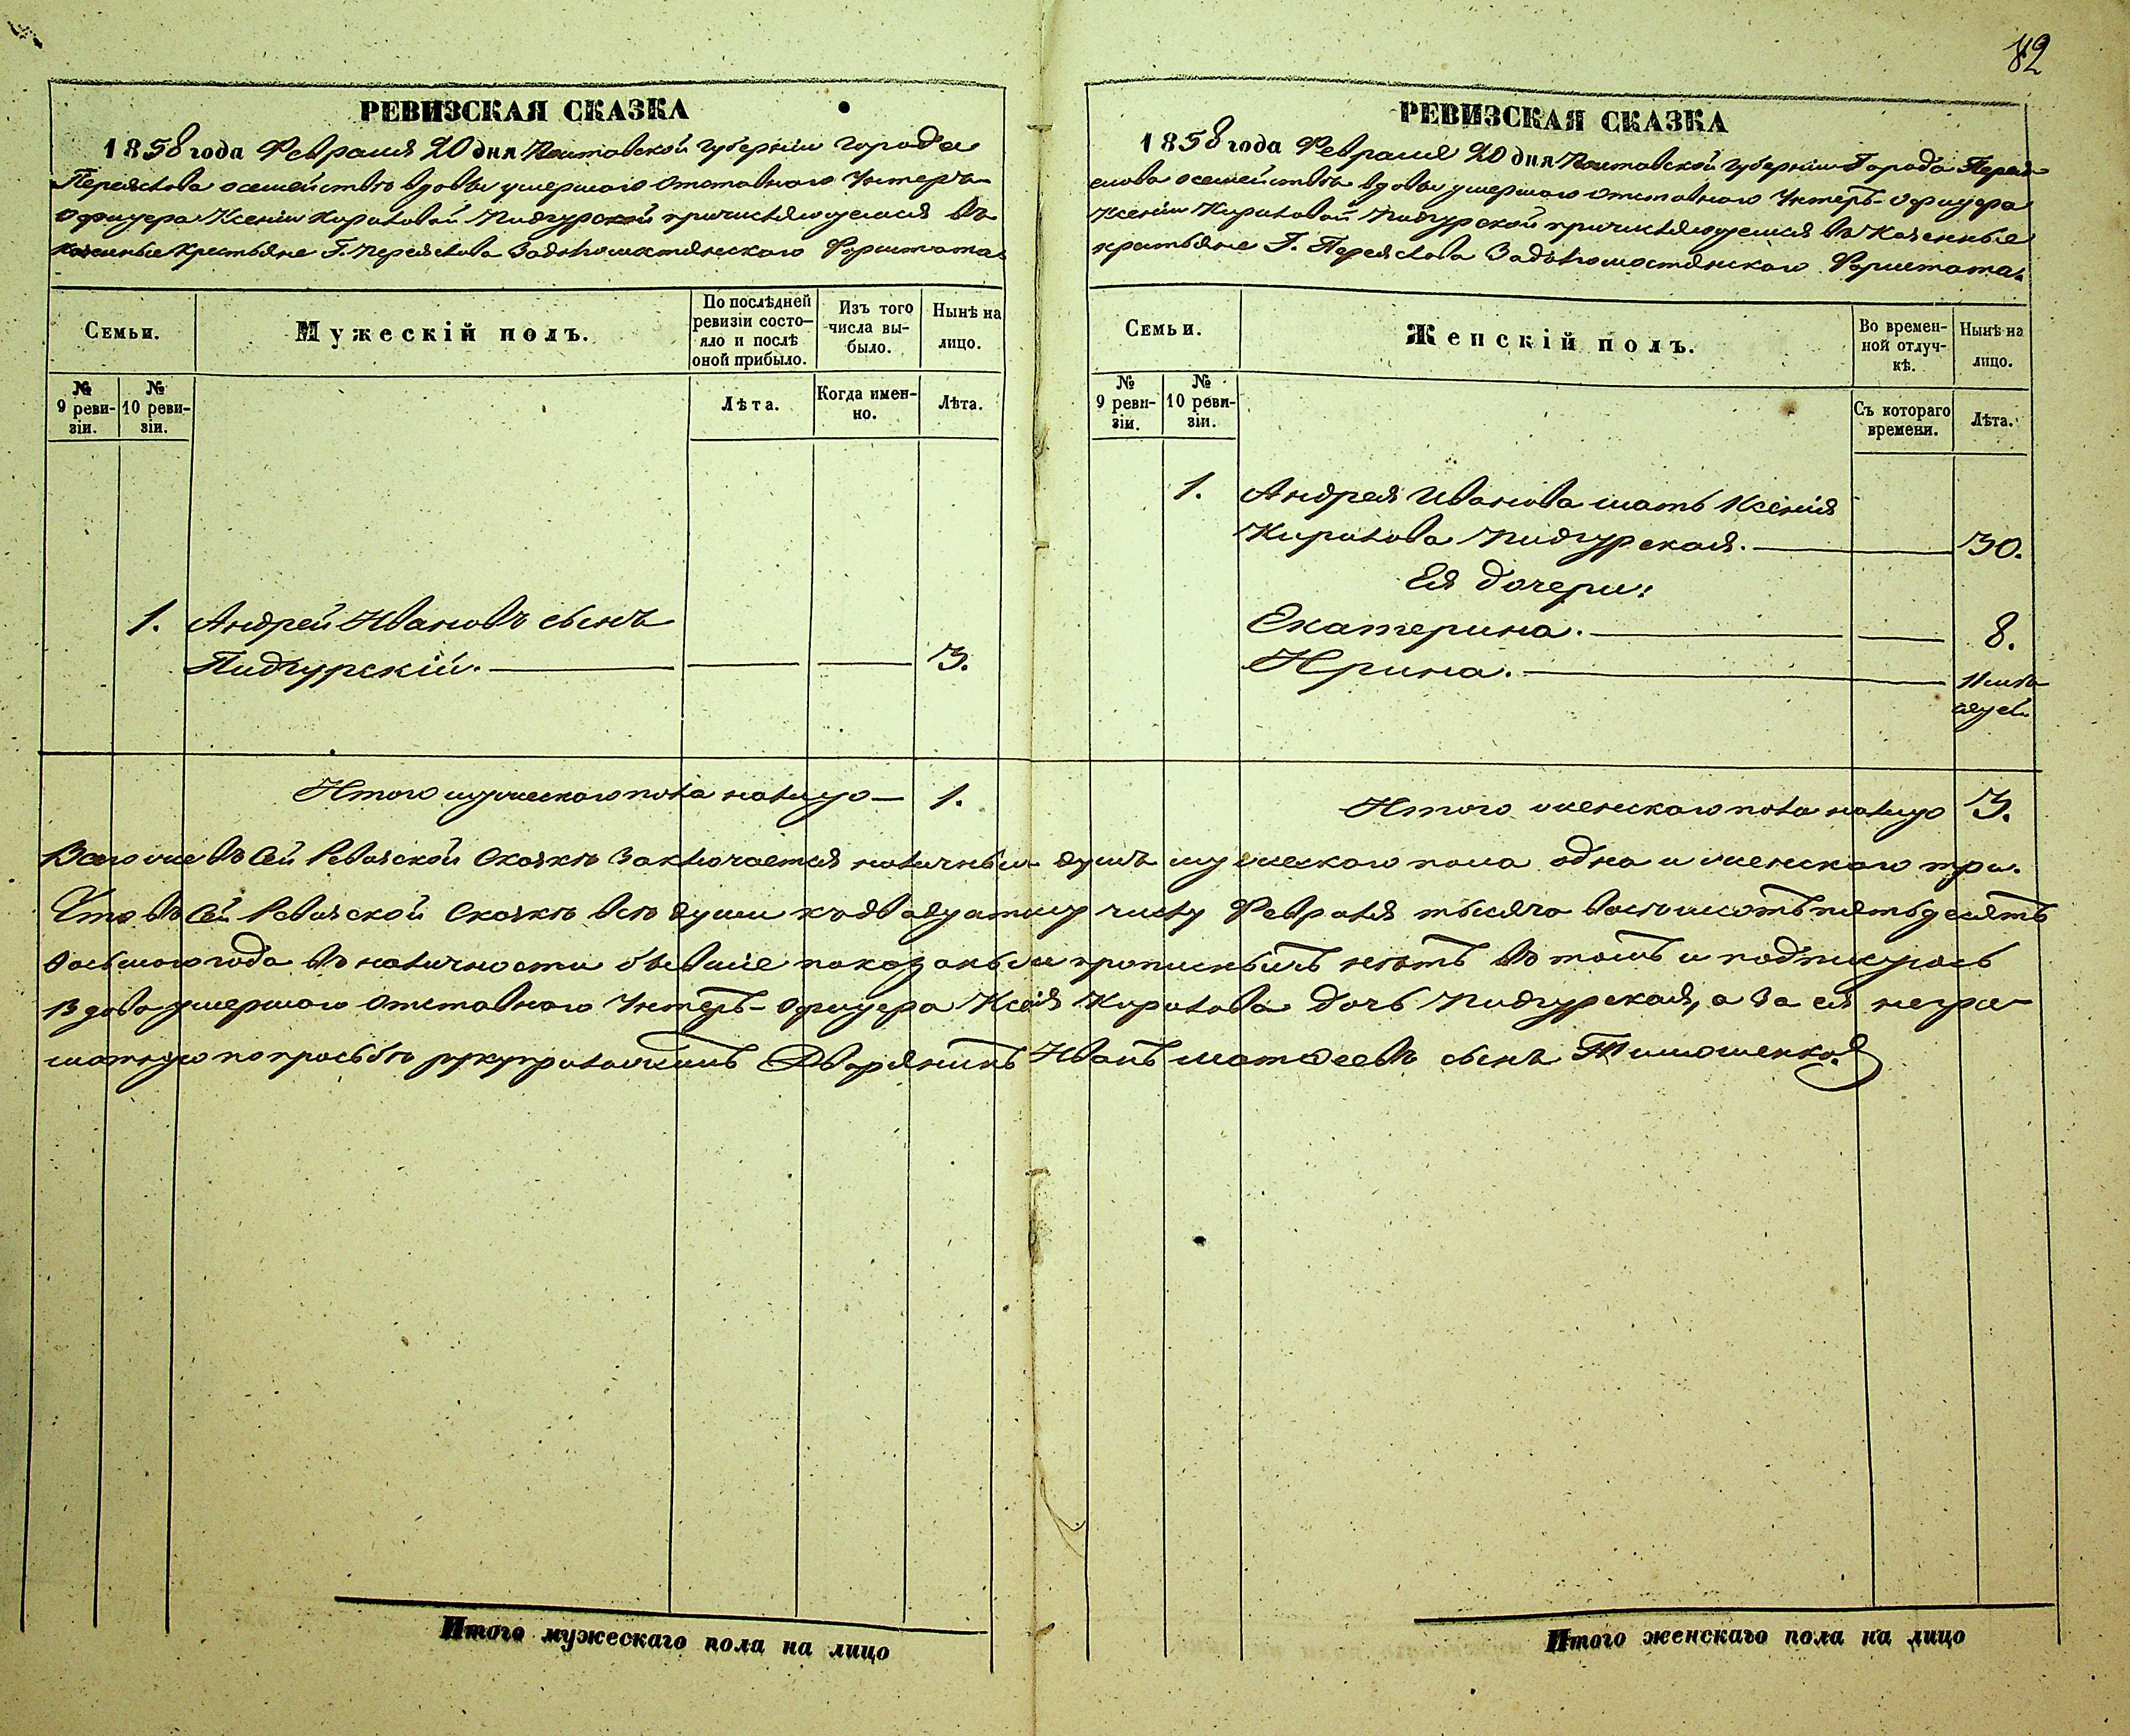 82
РЕВИЗСКАЯ СКАЗКА
1858 года Февраля 20 дня Полтавской Губерніи Города
Переяслова о семействѣ вдовы умершаго Отставного Унтеръ-
Офицера Ксеніи Кириловой Пидгурской причисляющемся въ
казенные крестьяне Г. Переяслова Задолгомостянскаго Форштата.
Семьи.
Мужескій полъ.
По послѣдней ревизіи состо-
яло и послѣ оной прибыло.
Изъ того числа вы-
было.
Нынѣ на лицо.
№ 9 реви-
зіи.
№ 10 реви-
зіи.
Лѣта.
Когда имен-
но.
Лѣта.
1. Андрей Ивановъ сынъ
Пидгурскій. 3.
Итого мужескаго пола налицо — 1.
РЕВИЗСКАЯ СКАЗКА
1858 года Февраля 20 дня Полтавской Губерніи Города Перея-
слова о семействѣ вдовы умершаго Отставного Унтеръ-Офицера
Ксеніи Кириловой Пидгурской причисляющемся въ Казенные
крестьяне Г. Переяслова Задолгомостянскаго Форштата.
Семьи.
Женскій полъ.
Во времен-
ной отлуч-
кѣ.
Нынѣ на лицо.
№ 9 реви-
зіи.
№ 10 реви-
зіи.
Съ котораго времени.
Лѣта.
1. Андрея Иванова мать Ксенія
Кирилова Пидгурская. 30.
Ея дочери:
Екатерина. 8.
Ирина. 11 мѣ-
сяцевъ
Итого женскаго пола налицо 3.
Всего же въ сей Ревизской Сказкѣ заключается наличныхъ душъ мужескаго пола одна и женскаго три.
Что въ сей Ревизской Сказкѣ всѣ души къ двадцатому числу Февраля тысяча восемьсотъ пятьдесятъ
восьмого года въ наличности бывшіе показаны и прописныхъ нѣтъ въ томъ и подписуюсь
Вдова умершаго Отставного Унтеръ-Офицера Ксенія Кирилова дочь Пидгурская, а за ея негра-
мотную по просьбѣ рукуприложилъ Дворянинъ Иванъ Матвеевъ сынъ Тимошенко.
Итого мужескаго пола на лицо
Итого женскаго пола на лицо